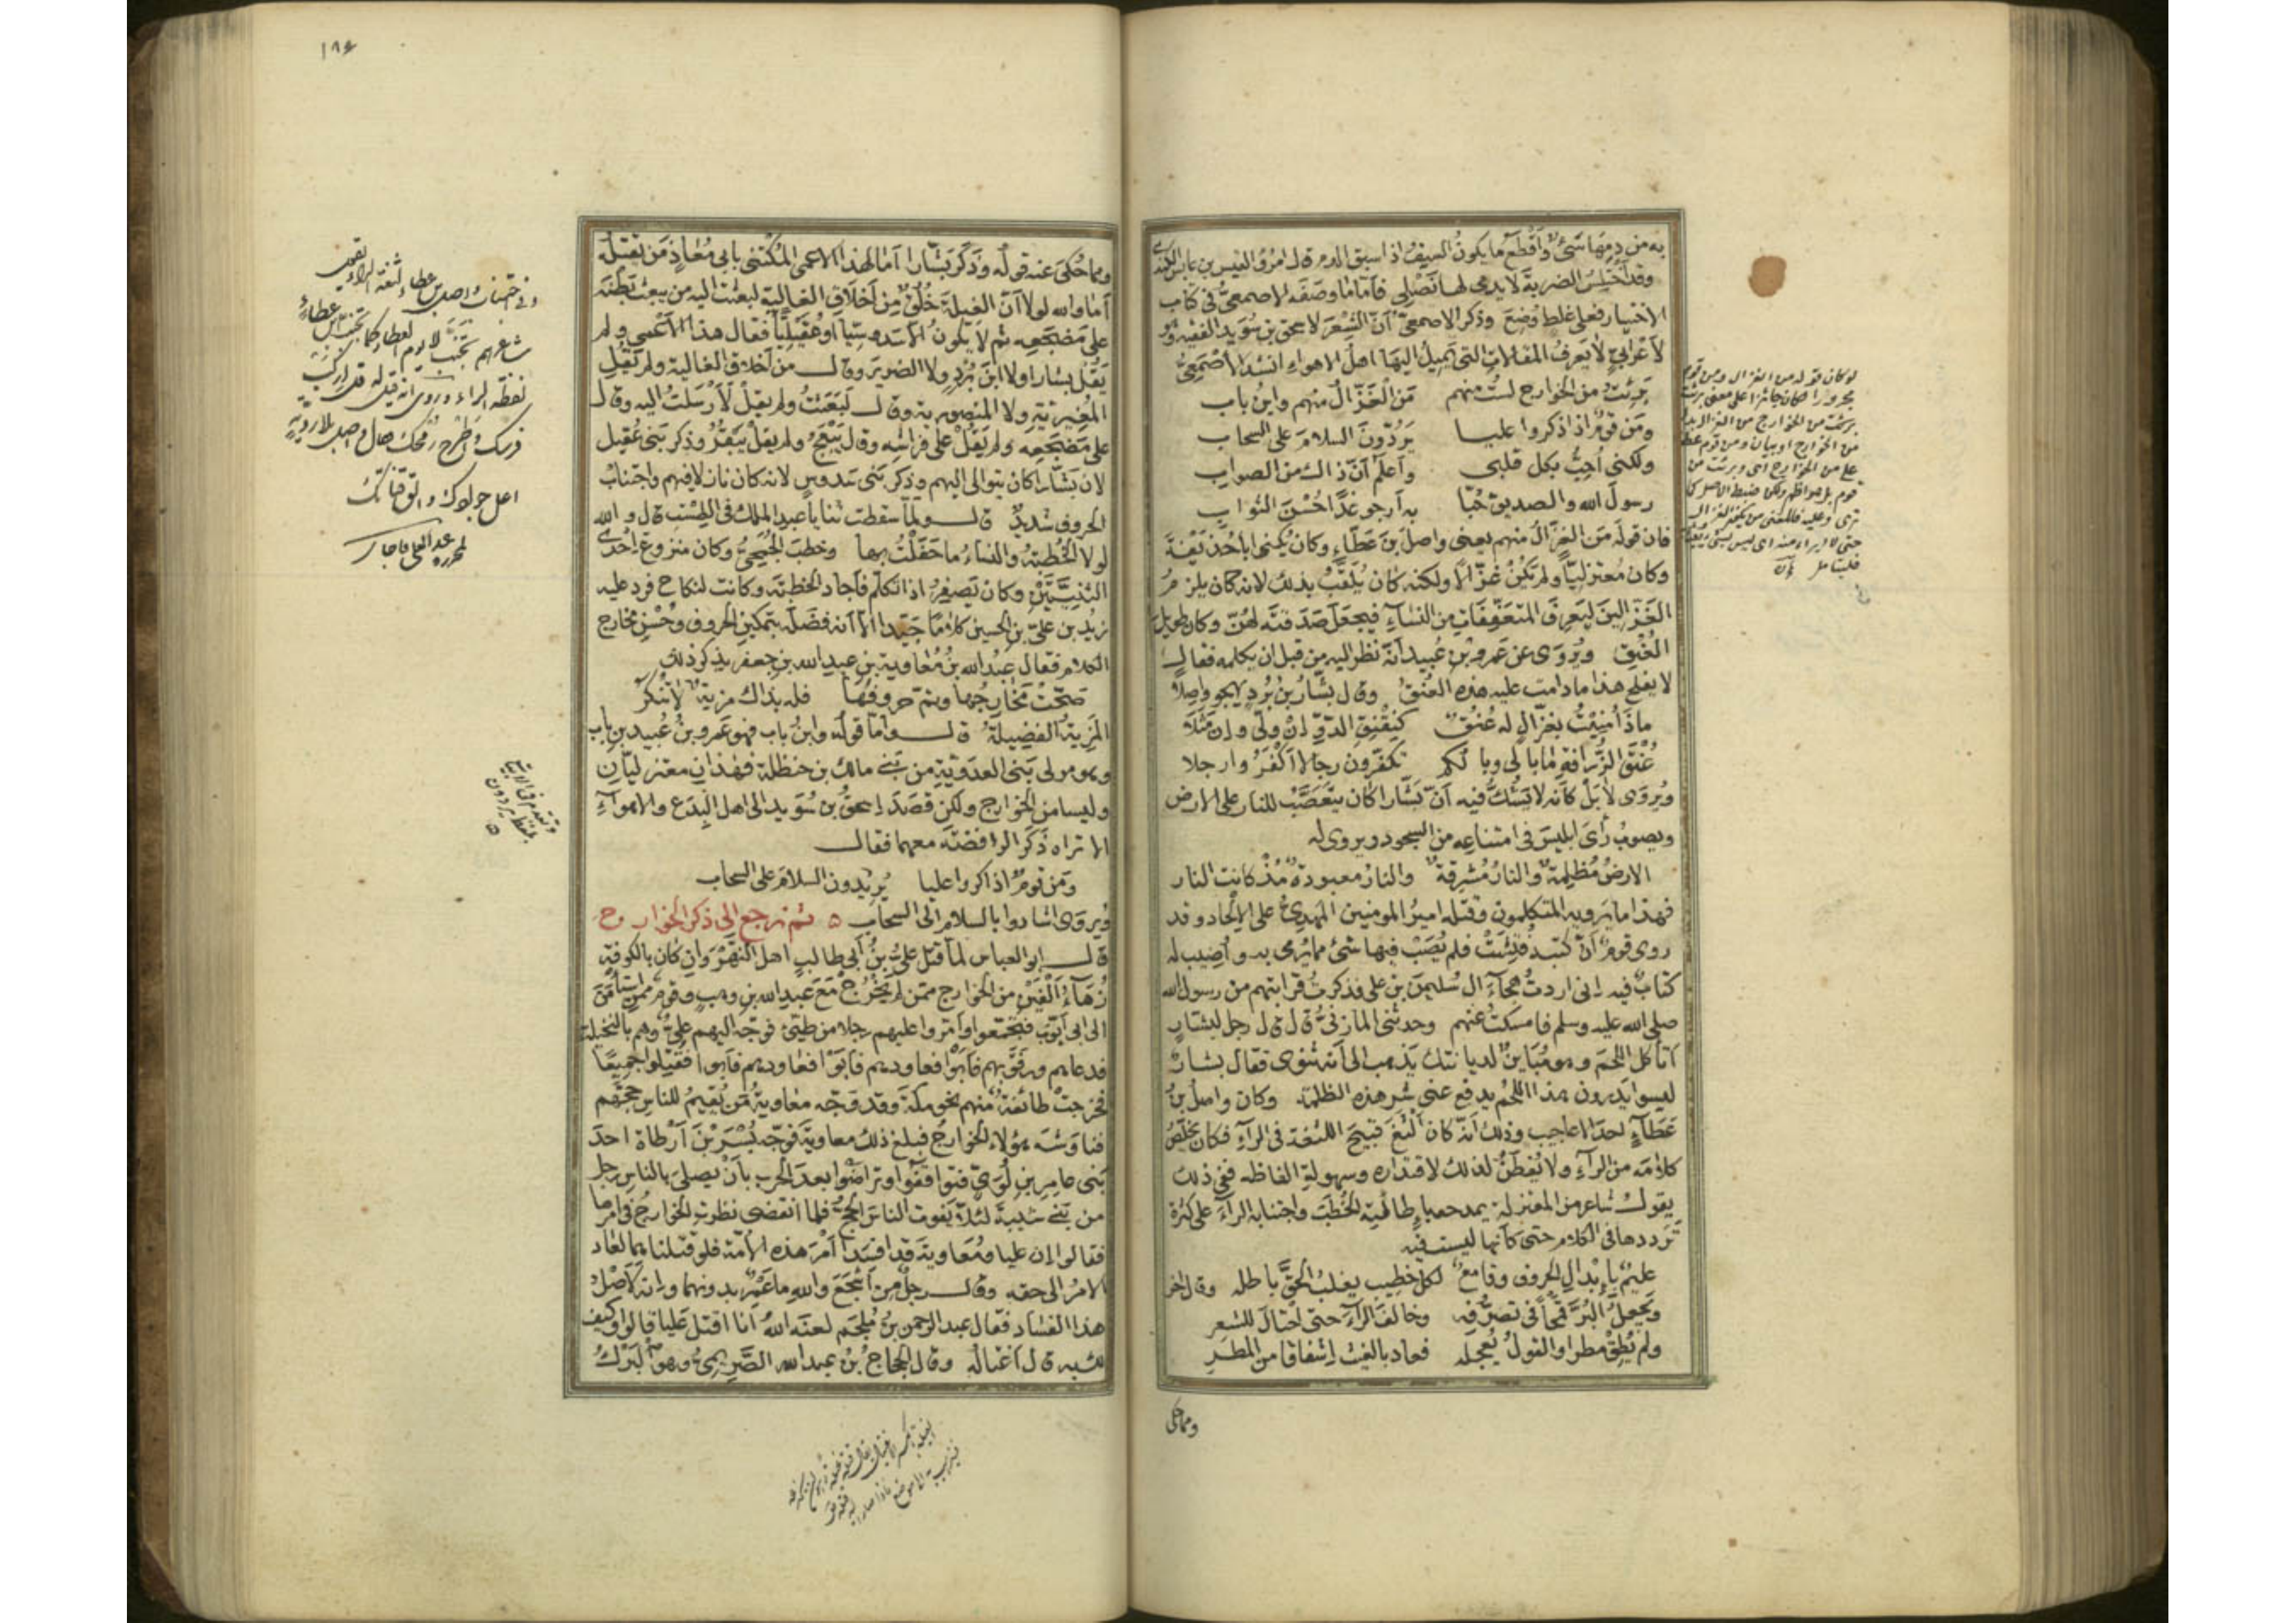 به من دمها شئ وأقطع ما يكون السيف اذا سبق الدم قال امرؤ القيس بن عابس الكندى
وقد أختلس الضربة لا يدمى لها نصلى فأما ما وصفه الاصمعى فى كتاب
الاختيار فعلى غلط وضع وذكر الاصمعى أن الشعر لاسحق بن سويد الفقيه وهو
لأعرابى لا يعرف المقالات التى يميل اليها أهل الاهواء انشد الأصمعى
برئت من الخوارج لست منهم من الغزال منهم وابن باب
ومن قوم اذا ذكروا عليا يردون السلام على السحاب
ولكنى أحب بكل قلبى وأعلم أن ذاك من الصواب
رسول الله والصديق حبا به أرجو غدا حسن الثواب
فان قوله من الغزال منهم يعنى واصل بن عطاء وكان يكنى أبا حذيفة
وكان معتزليا ولم يكن غزالا ولكنه كان يلقب بذلك لانه كان يلزم
الغزالين ليعرف المتعففات من النساء فيجعل صدقته لهن وكان طويل
العنق ويروى عن عمرو بن عبيد أنه نظر اليه من قبل ان يكلمه فقال
لا يفلح هذا ما دامت عليه هذه العنق وقال بشار بن برد يهجو واصلا
ماذا منيت بغزال له عنق كنقنق الدو إن ولى وإن مثلا
عنق الزرافة ما بالى وبالكم تكفرون رجالا أكفروا رجلا
ويروى لا بل كأنه لا يشك فيه أن بشارا كان يتعصب للنار على الارض
ويصوب رأى ابليس فى امتناعه من السجود ويروى له
الارض مظلمة والنار مشرقة والنار معبودة مذ كانت النار
فهذا ما يرويه المتكلمون وقتله امير المومنين المهدى على الالحاد وقد
روى قوم أن كتبه فتشت فلم يصب فيها شئ مما يرمى به وأصيب له
كتاب فيه إنى اردت هجاء آل سليمن بن على فذكرت قرابتهم من رسول الله
صلى الله عليه وسلم فامسكت عنهم وحدثنى المازنى قال قال رجل لبشار
أتأكل اللحم وهو مباين لديانتك يذهب الى أنه ثنوى فقال بشار
ليسوا يدرون هذا اللحم يدفع عنى شر هذه الظلمة وكان واصل بن
عطاء احد الاعاجيب وذلك أنه كان ألثغ قبيح اللثغة فى الراء فكان يخلص
كلامه من الراء ولا يفطن لذلك لاقتداره وسهولة الفاظه ففى ذلك
يقول شاعر من المعتزلة يمدحه بإطالته الخطب واجتنابه الراء على كثرة
ترددها فى الكلام حتى كأنها ليست فيه
عليم بإبدال الحروف وقامع لكل خطيب يغلب الحق باطله وقال اخر
ويجعل البر قمحا فى تصرفه وخالف الراء حتى احتال للشعر
ولم يطق مطرا والقول يعجله فعاد بالغيث إشفاقا من المطر
ومما حكى
لو كان قوله من الغزال ومن قوم
مجرورا لكان جائزا على معنى برئت
١٨٤
ومما حكى عنه قوله وذكر بشارا أما لهذا الاعمى المكتنى بابى معاذ من يقتله
أما والله لولا أن الغيلة خلق من أخلاق الغالية لبعثت اليه من يبعث بطنه
على مضجعه ثم لا يكون الا سدوسيا او عقيليا فقال هذا الأعمى ولم
يقل بشارا ولا ابن برد ولا الضرير وقال من أخلاق الغالية ولم يقل
المغيرية ولا المنصورية وقال لبعثت ولم يقل لأرسلت اليه وقال
على مضجعه ولم يقل على فراشه وقال يبعج ولم يقل يبقر وذكر بنى عقيل
لان بشارا كان يتوالى إليهم وذكر بنى سدوس لانه كان نازلا فيهم واجتناب
الحروف شديد قال ولما سقطت ثنايا عبد الملك فى الطست قال والله
لولا الخطبة والنساء ما حفلت بها وخطب الجمحى وكان منزوع إحدى
الثنيتين وكان يصفر اذا تكلم فأجاد الخطبة وكانت لنكاح فرد عليه
زيد بن على بن الحسين كلاما جيدا الا أنه فضله بتمكين الحروف وحسن مخارج
الكلام فقال عبد الله بن معاوية بن عبد الله بن جعفر يذكر ذلك
صحت مخارجها وتم حروفها فله بذاك مزية لا تنكر
المزية الفضيلة قال وأما قوله وابن باب فهو عمرو بن عبيد بن باب
وهو مولى بنى العدوية من بنى مالك بن حنظلة فهذان معتزليان
وليسا من الخوارج ولكن قصد إسحق بن سويد الى اهل البدع والاهواء
الا تراه ذكر الرافضة معهما فقال
ومن قوم اذا ذكروا عليا يردون السلام على السحاب
ويروى اشادوا بالسلام الى السحاب ه ثم نرجع الى ذكر الخوارج
قال ابو العباس لما قتل على بن أبى طالب اهل النهروان كان بالكوفة
زهاء ألفين من الخوارج ممن لم يخرج مع عبد الله بن وهب وقوم ممن استأمن
الى ابى أيوب فتجمعوا وأمروا عليهم رجلا من طيئ فوجه اليهم على وهم بالنخيلة
فدعاهم ورفق بهم فأبوا فعاودهم فأبوا فعاودهم فأبوا فقتلوا جميعا
فخرجت طائفة منهم نحو مكة وقد وجه معاوية من يقيم للناس حجهم
فناوشه هؤلاء الخوارج فبلغ ذلك معاوية فوجه بسر بن أرطاة احد
بنى عامر بن لؤى فتواقفوا وتراضوا بعد الحرب بأن يصلى بالناس رجل
من بنى شيبة لئلا يفوت الناس الحج فلما انقضى نظرت الخوارج فى امرها
فقالوا إن عليا ومعاوية قد افسدا أمر هذه الأمة فلو قتلناهما لعاد
الامر الى حقه وقال رجل من أشجع والله ما عمرو بدونهما وإنه لأصل
هذا الفساد فقال عبد الرحمن بن ملجم لعنه الله أنا اقتل عليا قالوا وكيف
لك به قال أغتاله وقال الحجاج بن عبد الله الصريمى وهو البرك